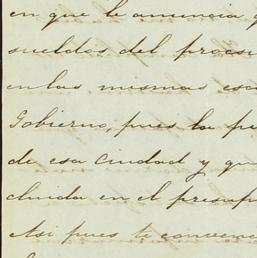 en que le anuncia q
sueldos del proces
en las mismas esc
Gobierno, pues la pr
de esa Ciudad y qu
cluida en el presup
Así pues te convenc